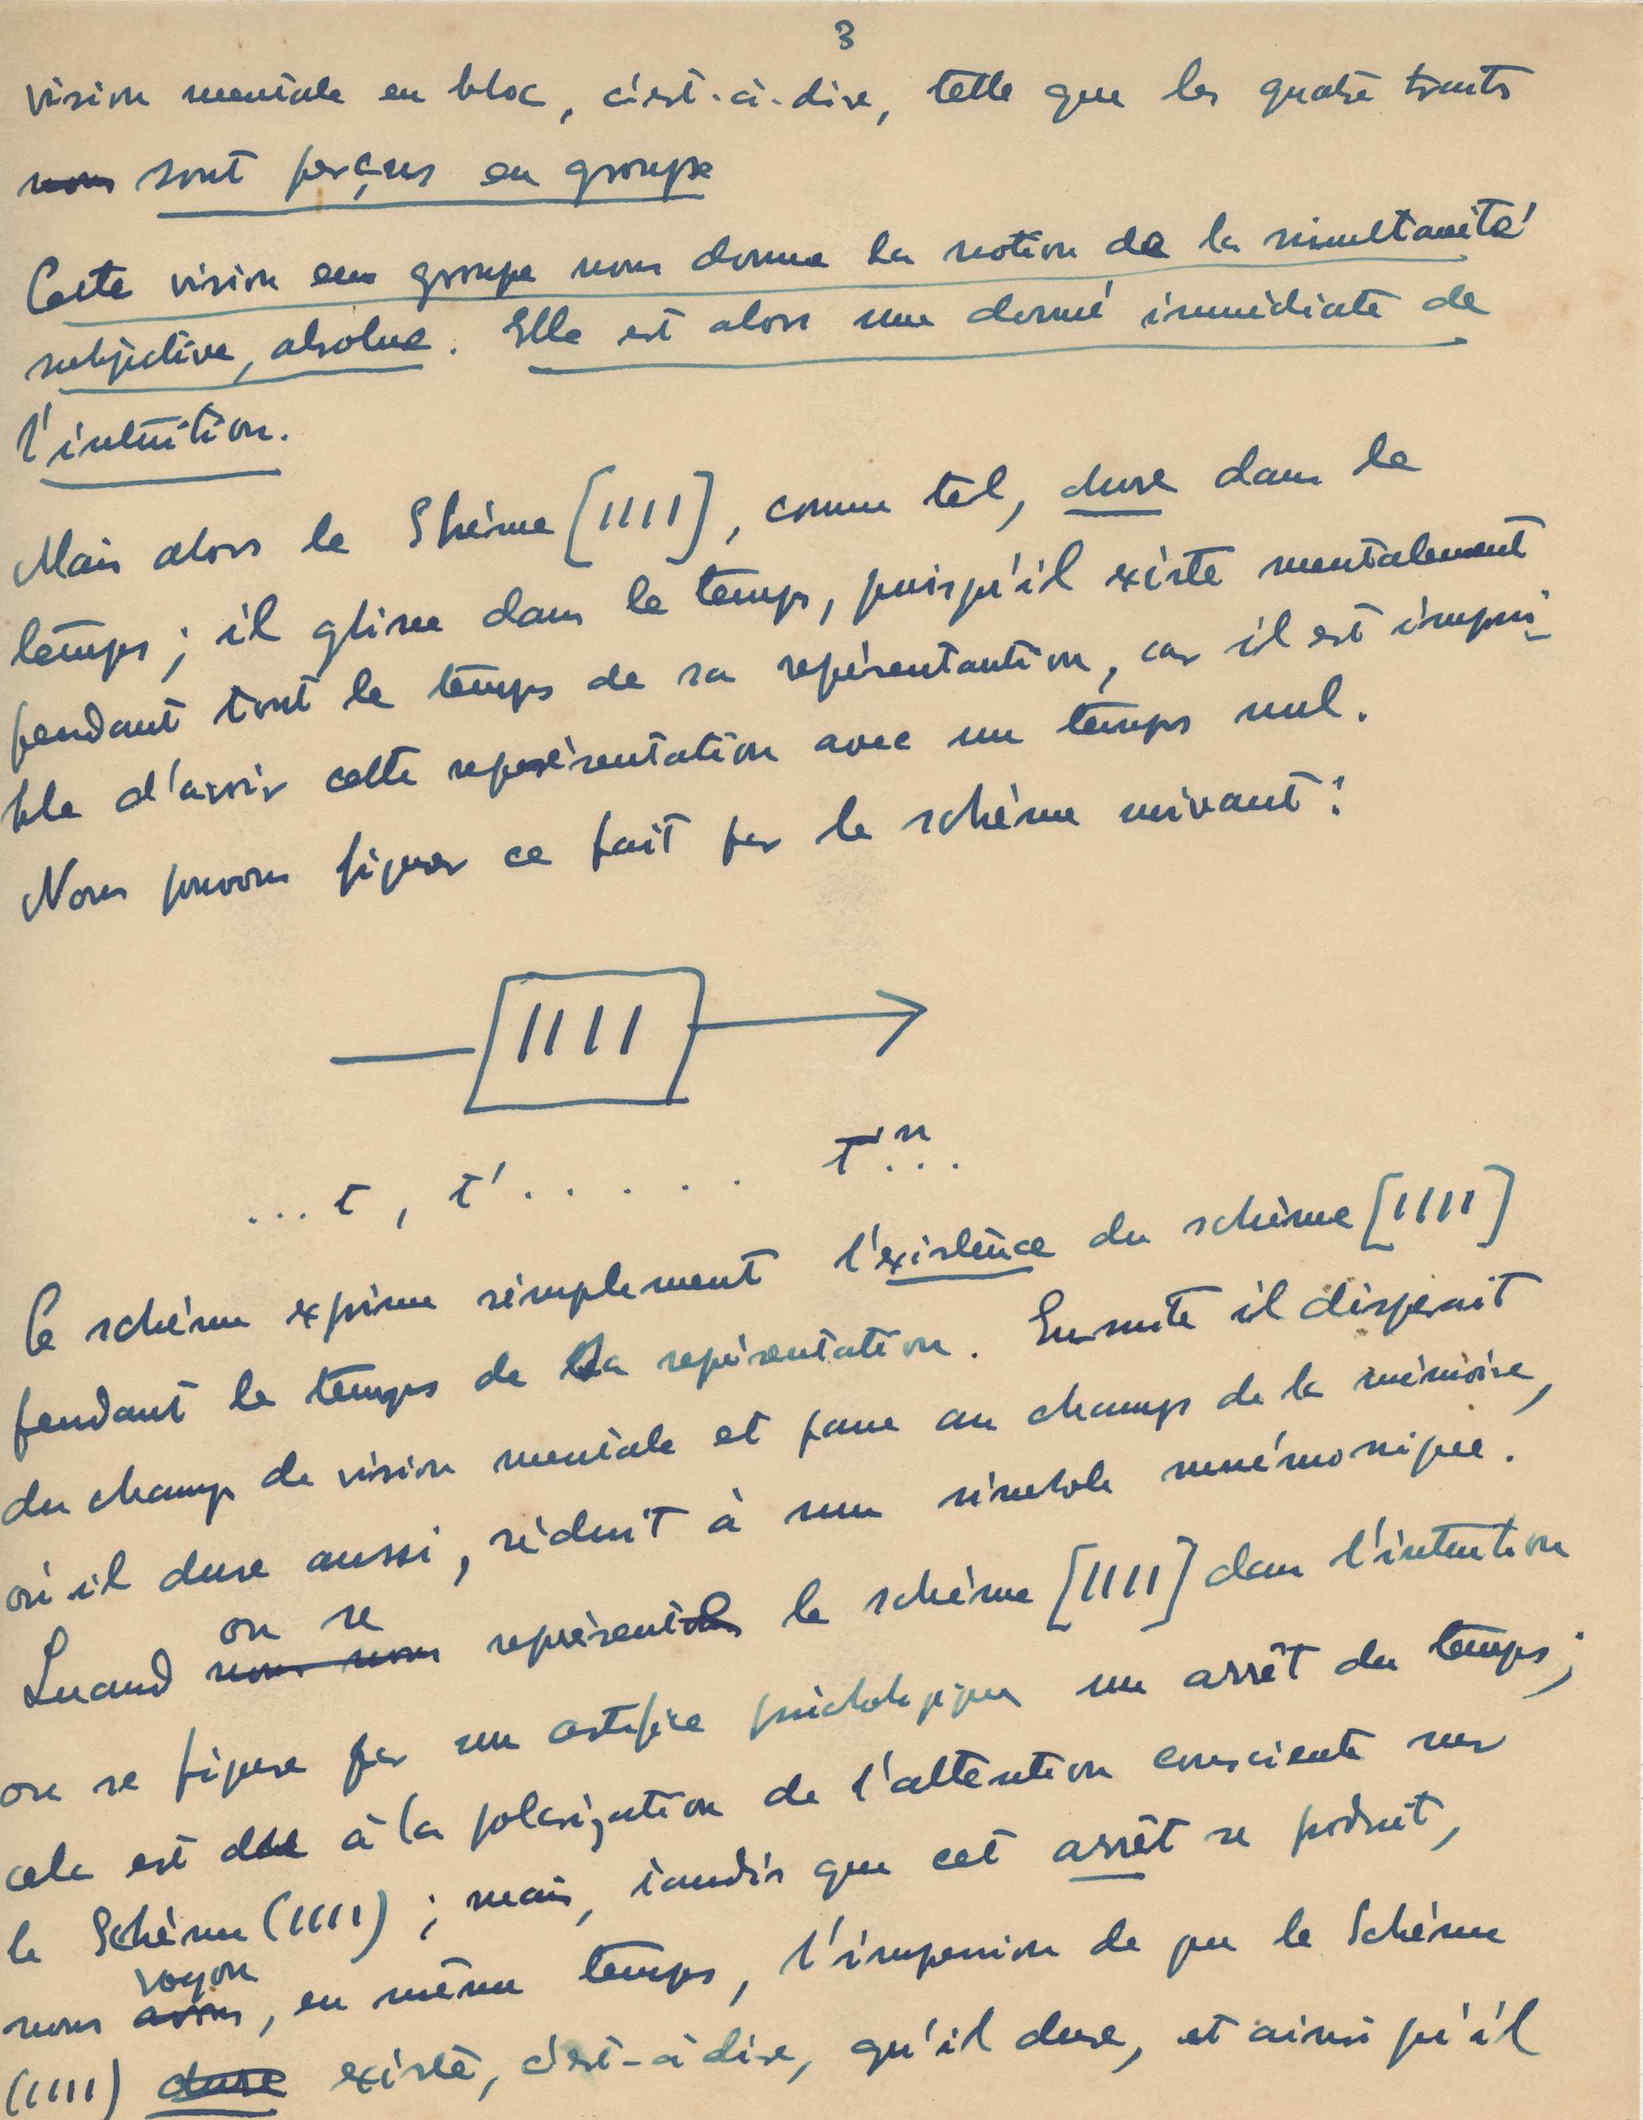 3
vision mentale en bloc, c'est-à-dire, telle que les quatre traits
nous sont perçus en groupe
Cette vision en groupe nous donne la notion de la simultanéité
subjective, absolue. Elle est alors une donné immédiate de
l'intuition.
Mais alors le Shème [IIII], comme tel, dure dans le
temps; il glisse dans le temps, puisqu'il existe mentalement
pendant tout le temps de sa représentantion, car il est impossi-
ble d'avoir cette représentation avec un temps nul.
Nous pouvons figurer ce fait par le schème suivant:
IIII
...t, t'...... t'n...
Ce schème exprime simplement l'existence du schème [IIII]
pendant le temps de la représentation. Ensuite il disparait
du champ de vision mentale et passe au champs de la mémoire,
où il dure aussi, réduit à un simbole mnémonique.
on se
Quand nous nous représente le schème [IIII] dans l'intention
on se figure par un artifice psichologique un arrêt du temps;
cela est due à la polarization de l'attention consciente sur
le Schème (IIII); mais, tandis que cet arrêt se produit,
voyon
nous avons, en même temps, l'impression de que le Schème
(IIII) dure existe, c'est-à dire, qu'il dure, et ainsi qu'il